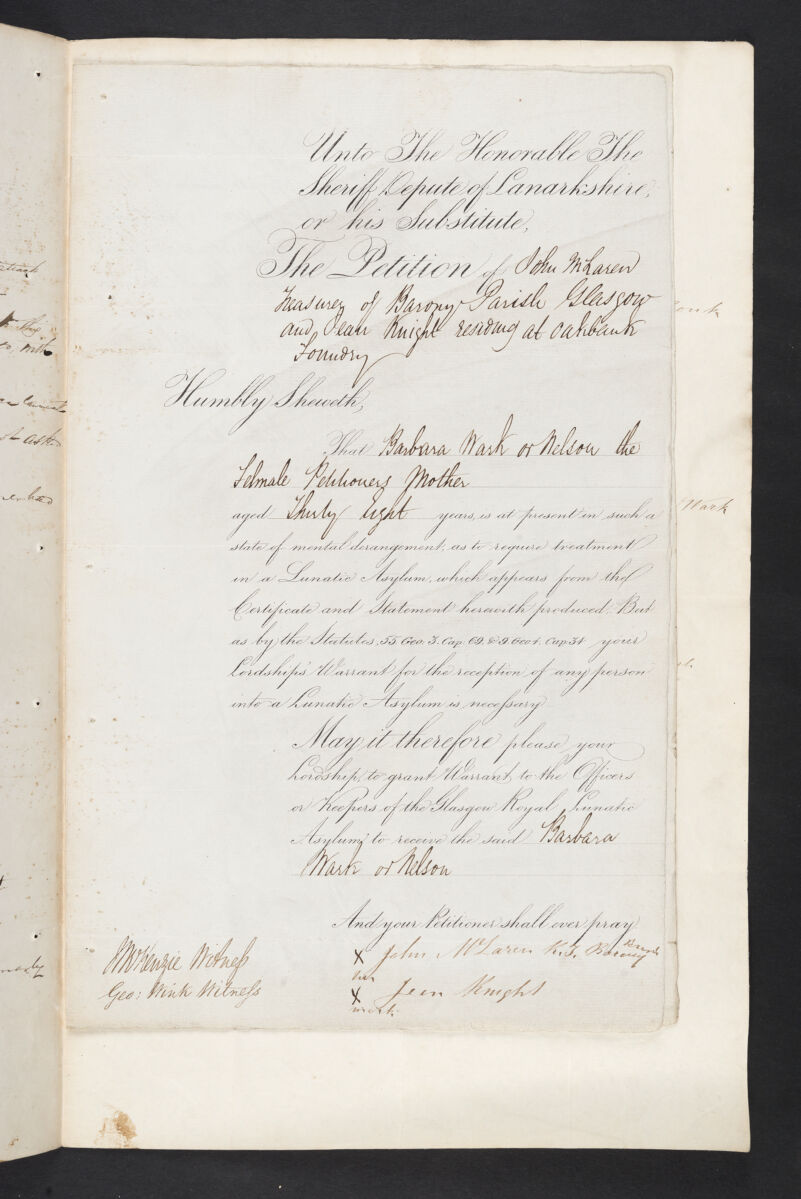 Unto The Honorable The
Sheriff Depute of Lanarkshire,
or his Substitute,
The Petition of John McLaren
Treasurer of Barony Parish Glasgow
and Jean Knight residing at Oakbank
Foundry
Humbly Sheweth,
That Barbara Wark or Nelson the
Female Petitioners Mother
aged Thirty Eight years, is at present in such a
state of mental derangement, as to require treatment
in a Lunatic Asylum, which appears from the
Certificate and Statement herewith produced: But
as by the Statutes, 55 Geo. 3. Cap. 69. & 9 Geo 4. Cap 34 your
Lordships' Warrant for the reception of any person
into a Lunatic Asylum is necessary
May it therefore please your
Lordship, to grant Warrant, to the Officers
or Keepers of the Glasgow Royal Lunatic
Asylum, to receive the said Barbara
Wark or Nelson
And your Petitioner shall ever pray
McKenzie Witness
Geo: Wink Witness
x John McLaren Barony
her
x Jean Knight
mark
Wark